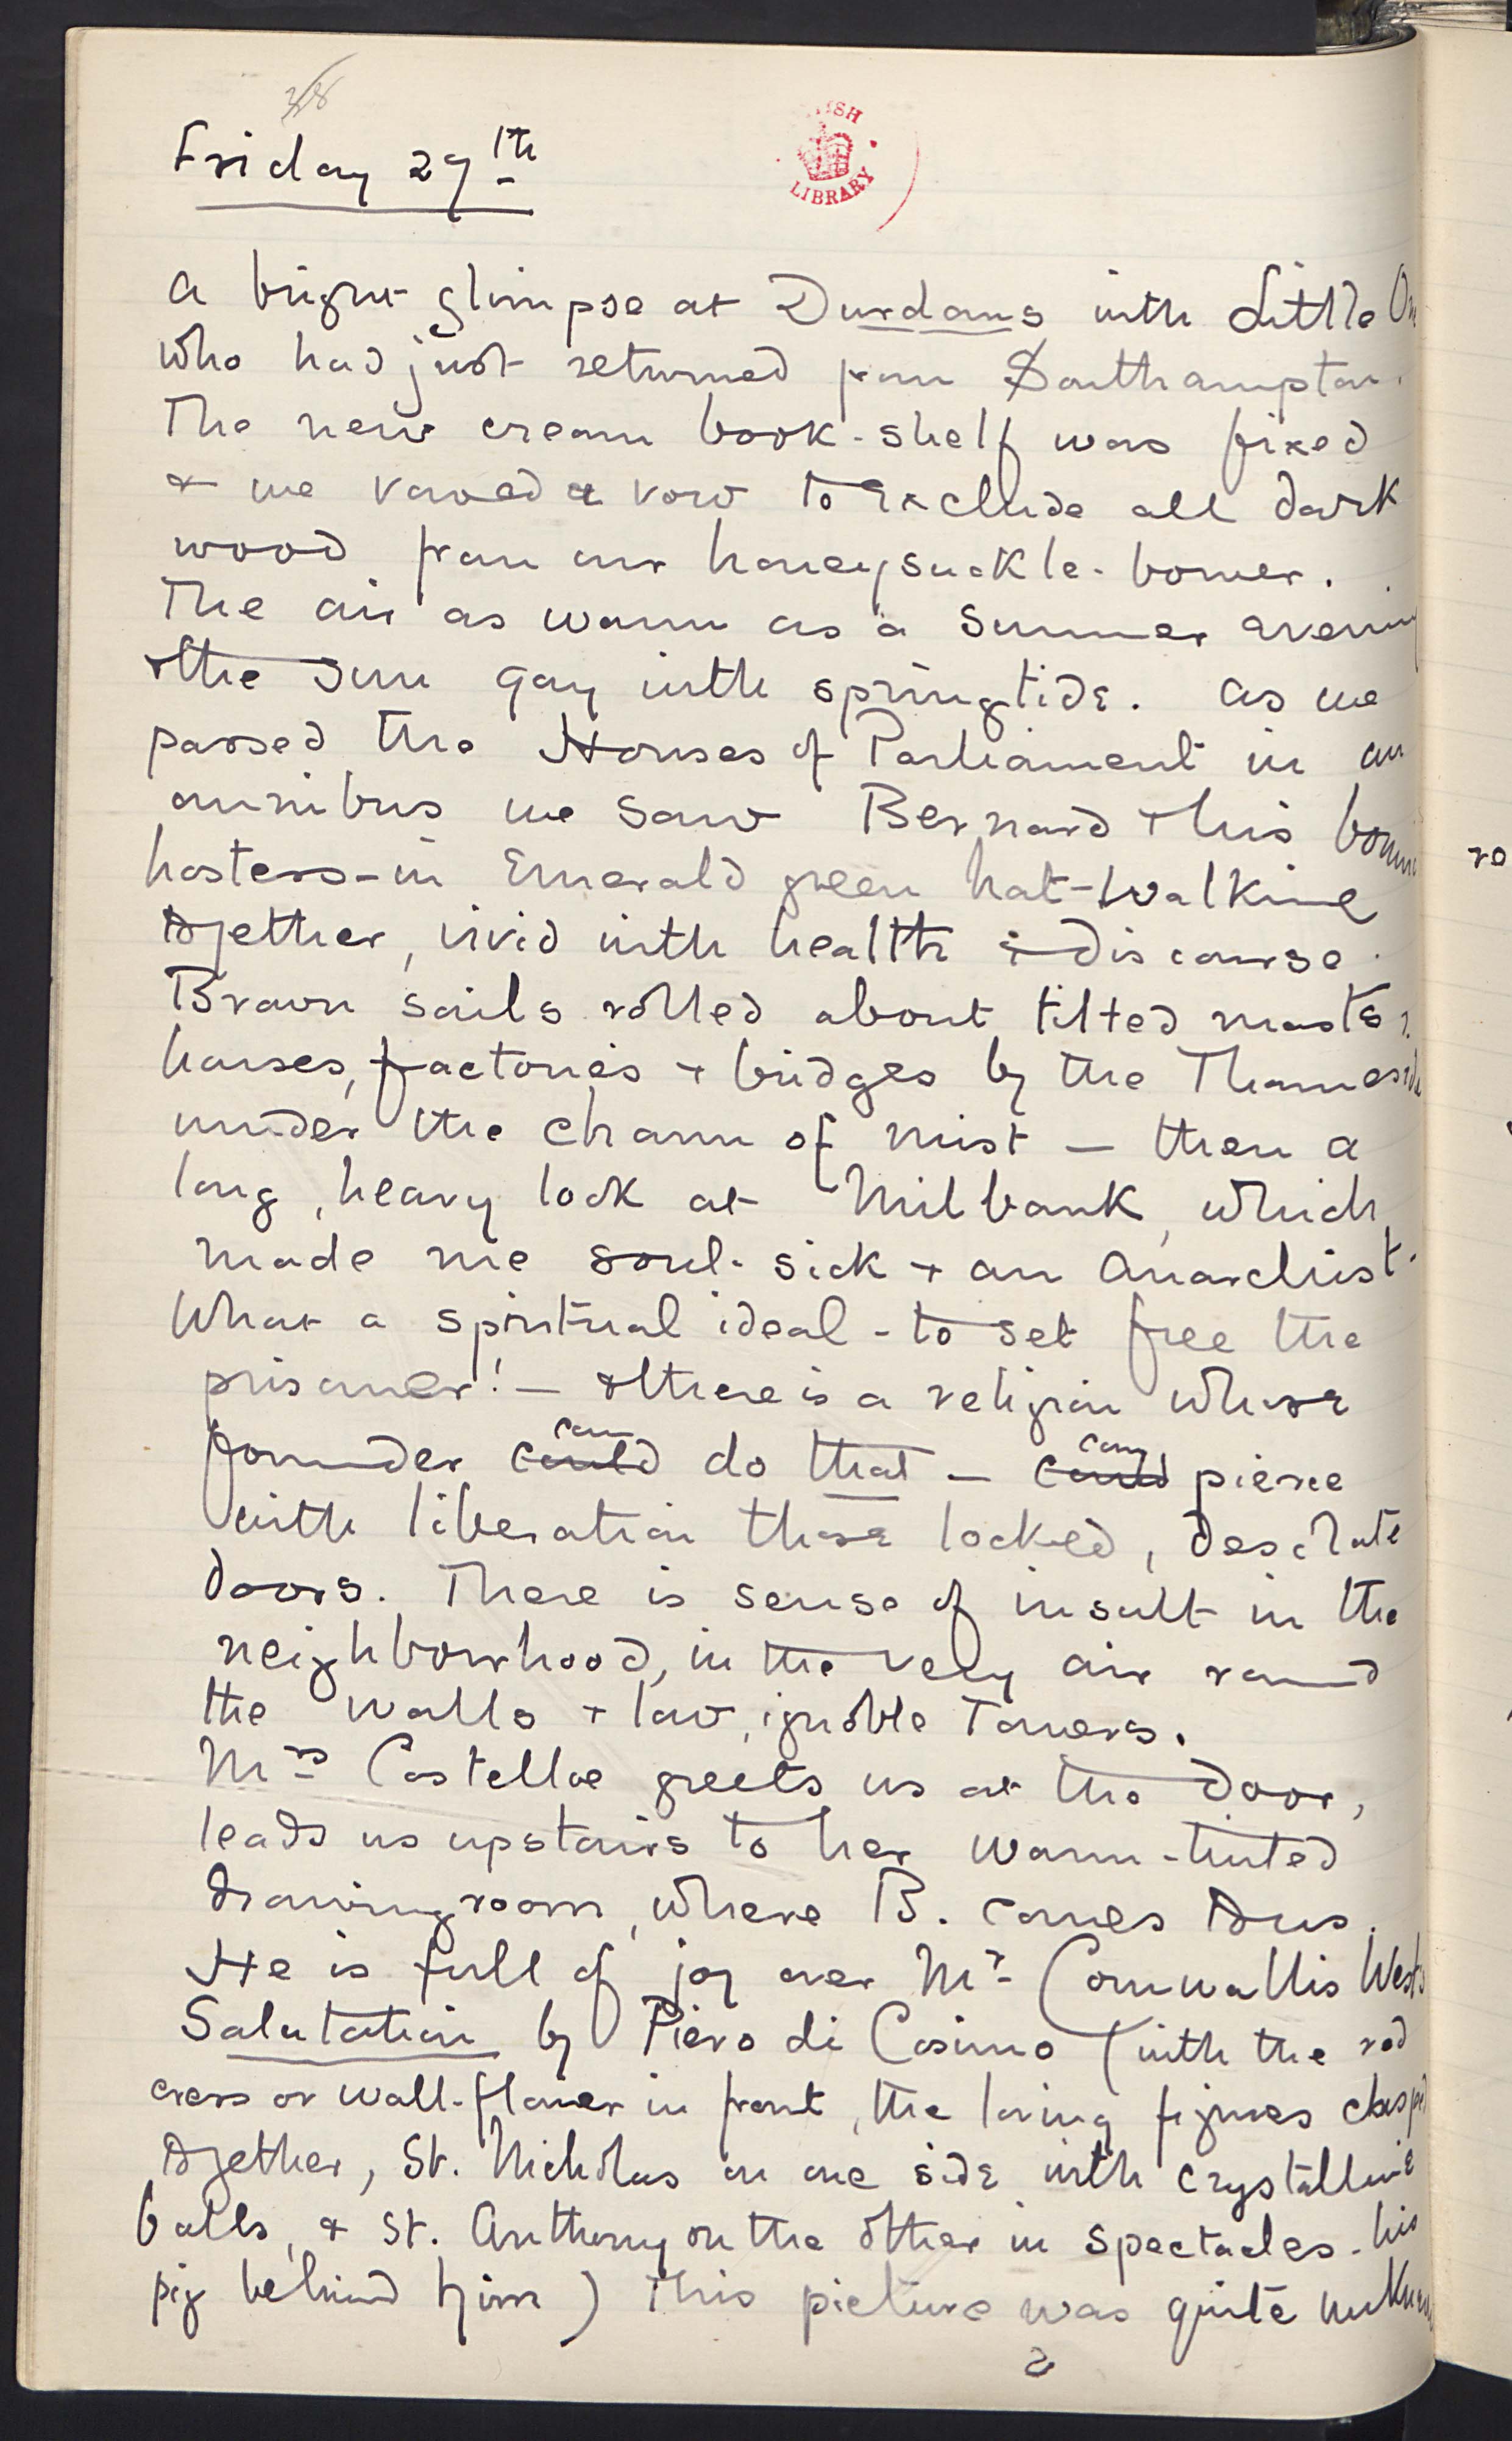 38
Friday 29th
BRITISH
LIBRARY
A bright glimpse at Durdans with Little On
who had just returned from Southampton.
The new cream book-shelf was fixed
& we vowed a vow to exclude all dark
wood from our honeysuckle-bower.
The air as warm as a summer evening
& the sun gay with springtide. As we
passed the Houses of Parliament in an
omnibus we saw Bernard & his bonnie
hostess-in Emerald green hat-walking
together, vivid with health & discourse.
Brown sails rolled about tilted masts &
houses, factories & bridges by the Thameside
under the charm of mist — then a
long, heavy look at Milbank, which
made me soul-sick & an Anarchist.
What a spiritual ideal - to set free the
prisoner! — & there is a religion whose
can can
founder could do that — could pierce
with liberation those locked, desolate
doors. There is sense of insult in the
neighbourhood, in the very air round
the walls & low, ignoble Towers.
Mrs Costelloe greets us at the door,
leads us upstairs to her warm-tinted
drawingroom, where B. comes to us.
He is full of joy over Mr Cornwallis West's
Salutation by Piero di Cosimo (with the red
cress or wall-flower in front, the loving figures clasped
together, St. Nicholas on one side with crystalline
balls, & St. Anthony on the other in spectacles - his
pig behind him) This picture was quite unknown
2